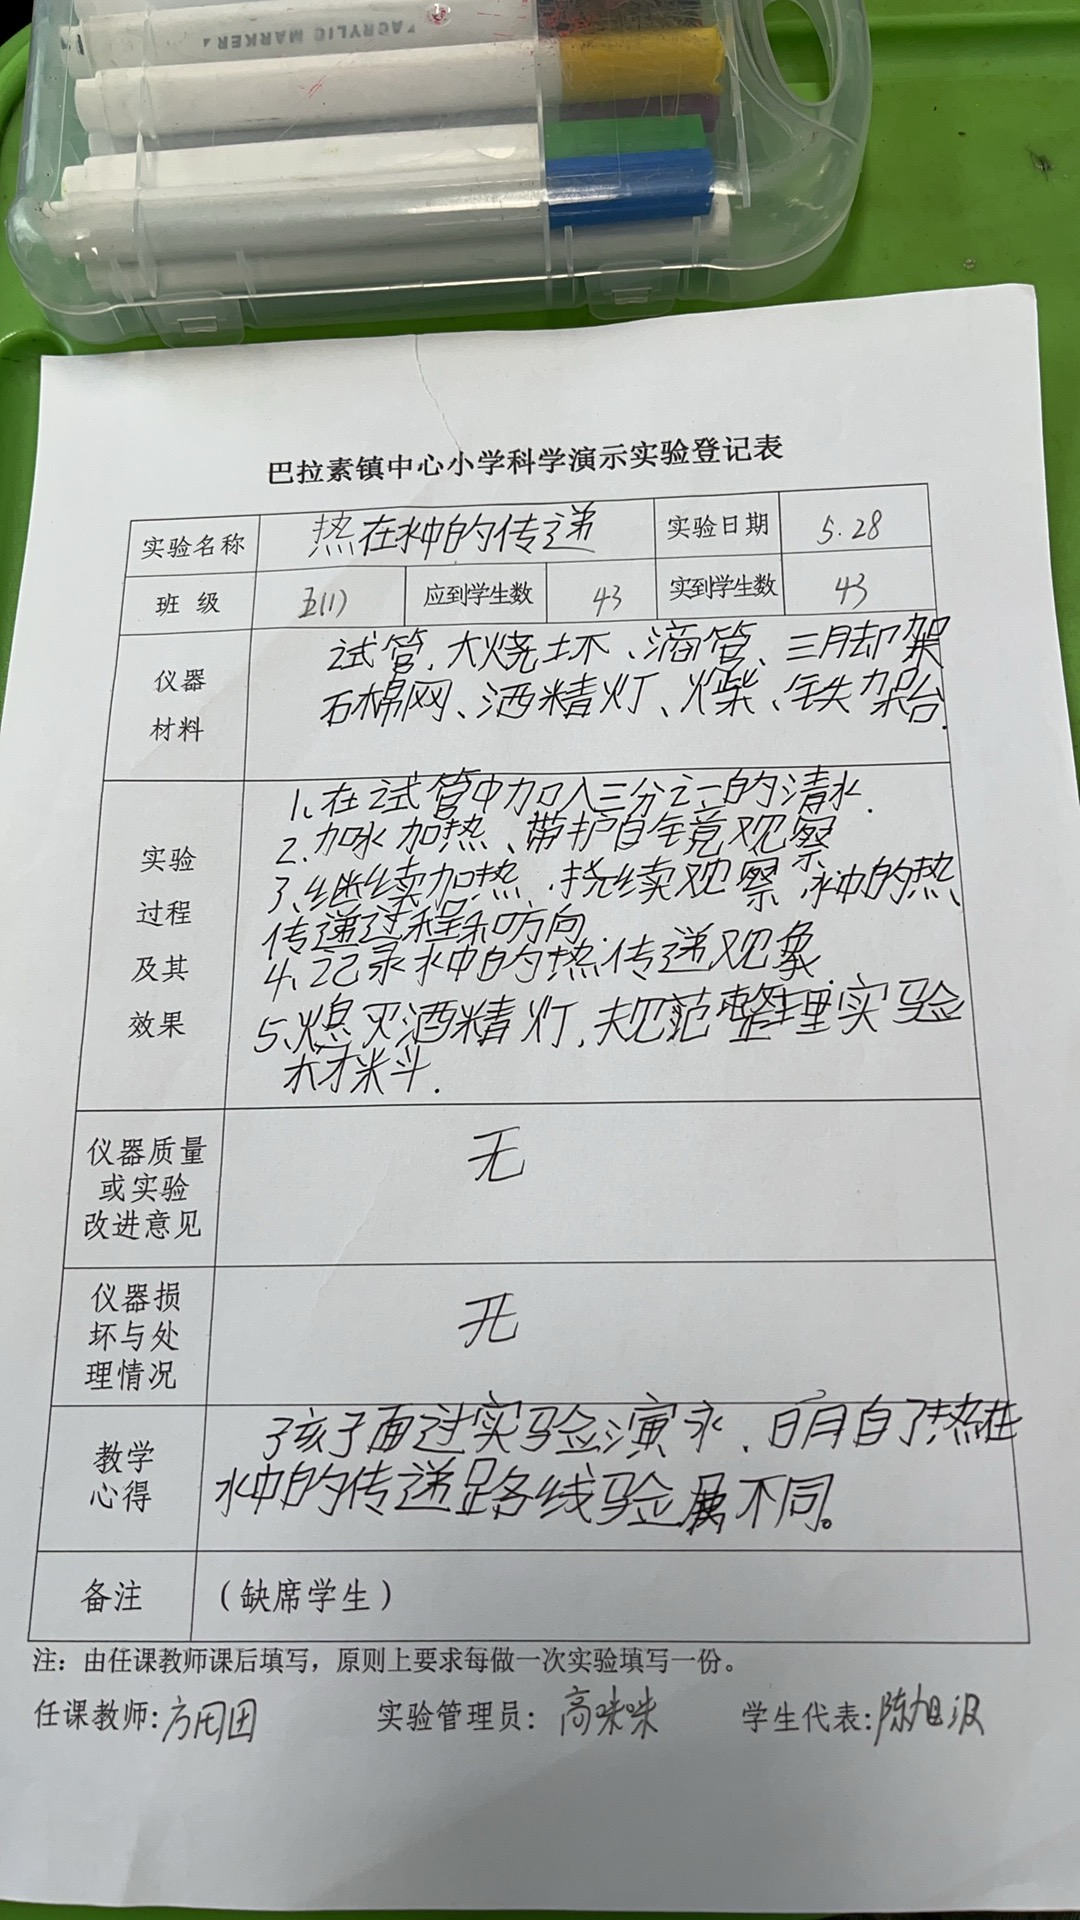 ACRYLIC MARKER
巴拉素镇中心小学科学演示实验登记表
实验名称 热在水中的传递 实验日期 5.28
班 级 五(1) 应到学生数 43 实到学生数 43
仪器
材料
试管、大烧坏、滴管、三月却架
石棉网、酒精灯、火柴、铁架台.
实验
过程
及其
效果
1、在试管中加入三分之一的清水.
2.加水加热、带护目镜观察
3、继续加热.持续观察水中的热
传递过程和方向.
4、记录水中的热传递现象
5、熄灭酒精灯.规范整理实验
材料.
仪器质量
或实验
改进意见
无
仪器损
坏与处
理情况
无
教学
心得
孩子面过实验演示、明白了热在
水中的传递路线验属不同。
备注 (缺席学生)
注：由任课教师课后填写，原则上要求每做一次实验填写一份。
任课教师: 实验管理员: 高咪咪 学生代表: